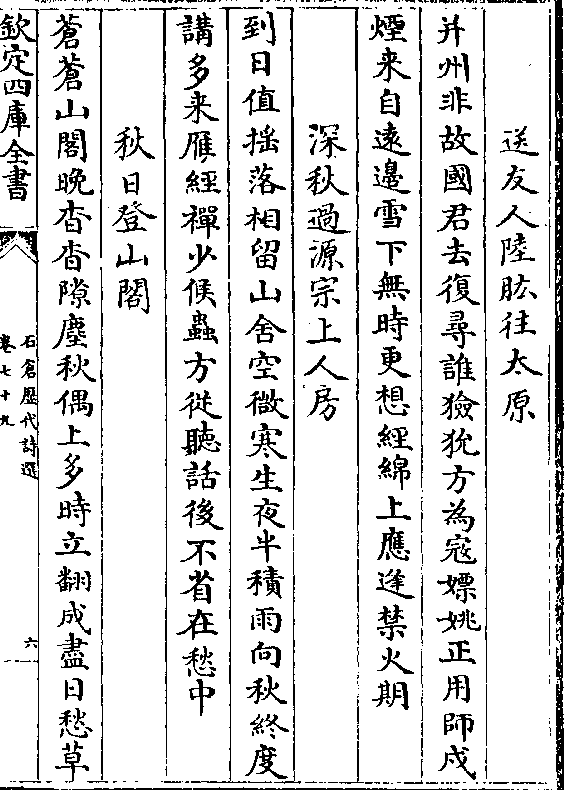 送友人陸肱往太原
并州非故國君去復尋誰獫狁方為寇嫖姚正用師戍
煙来自遠邊雪下無時更想經綿上應逢禁火期
深秋過源宗上人房
到日值揺落相留山舎空微寒生夜半積雨向秋終度
講多来雁經禪少候蟲方從聽話後不省在愁中
秋日登山閣
蒼蒼山閣晩杳杳隙塵秋偶上多時立翻成盡日愁草
欽定四庫全書
石倉歷代詩選
卷七十九
六